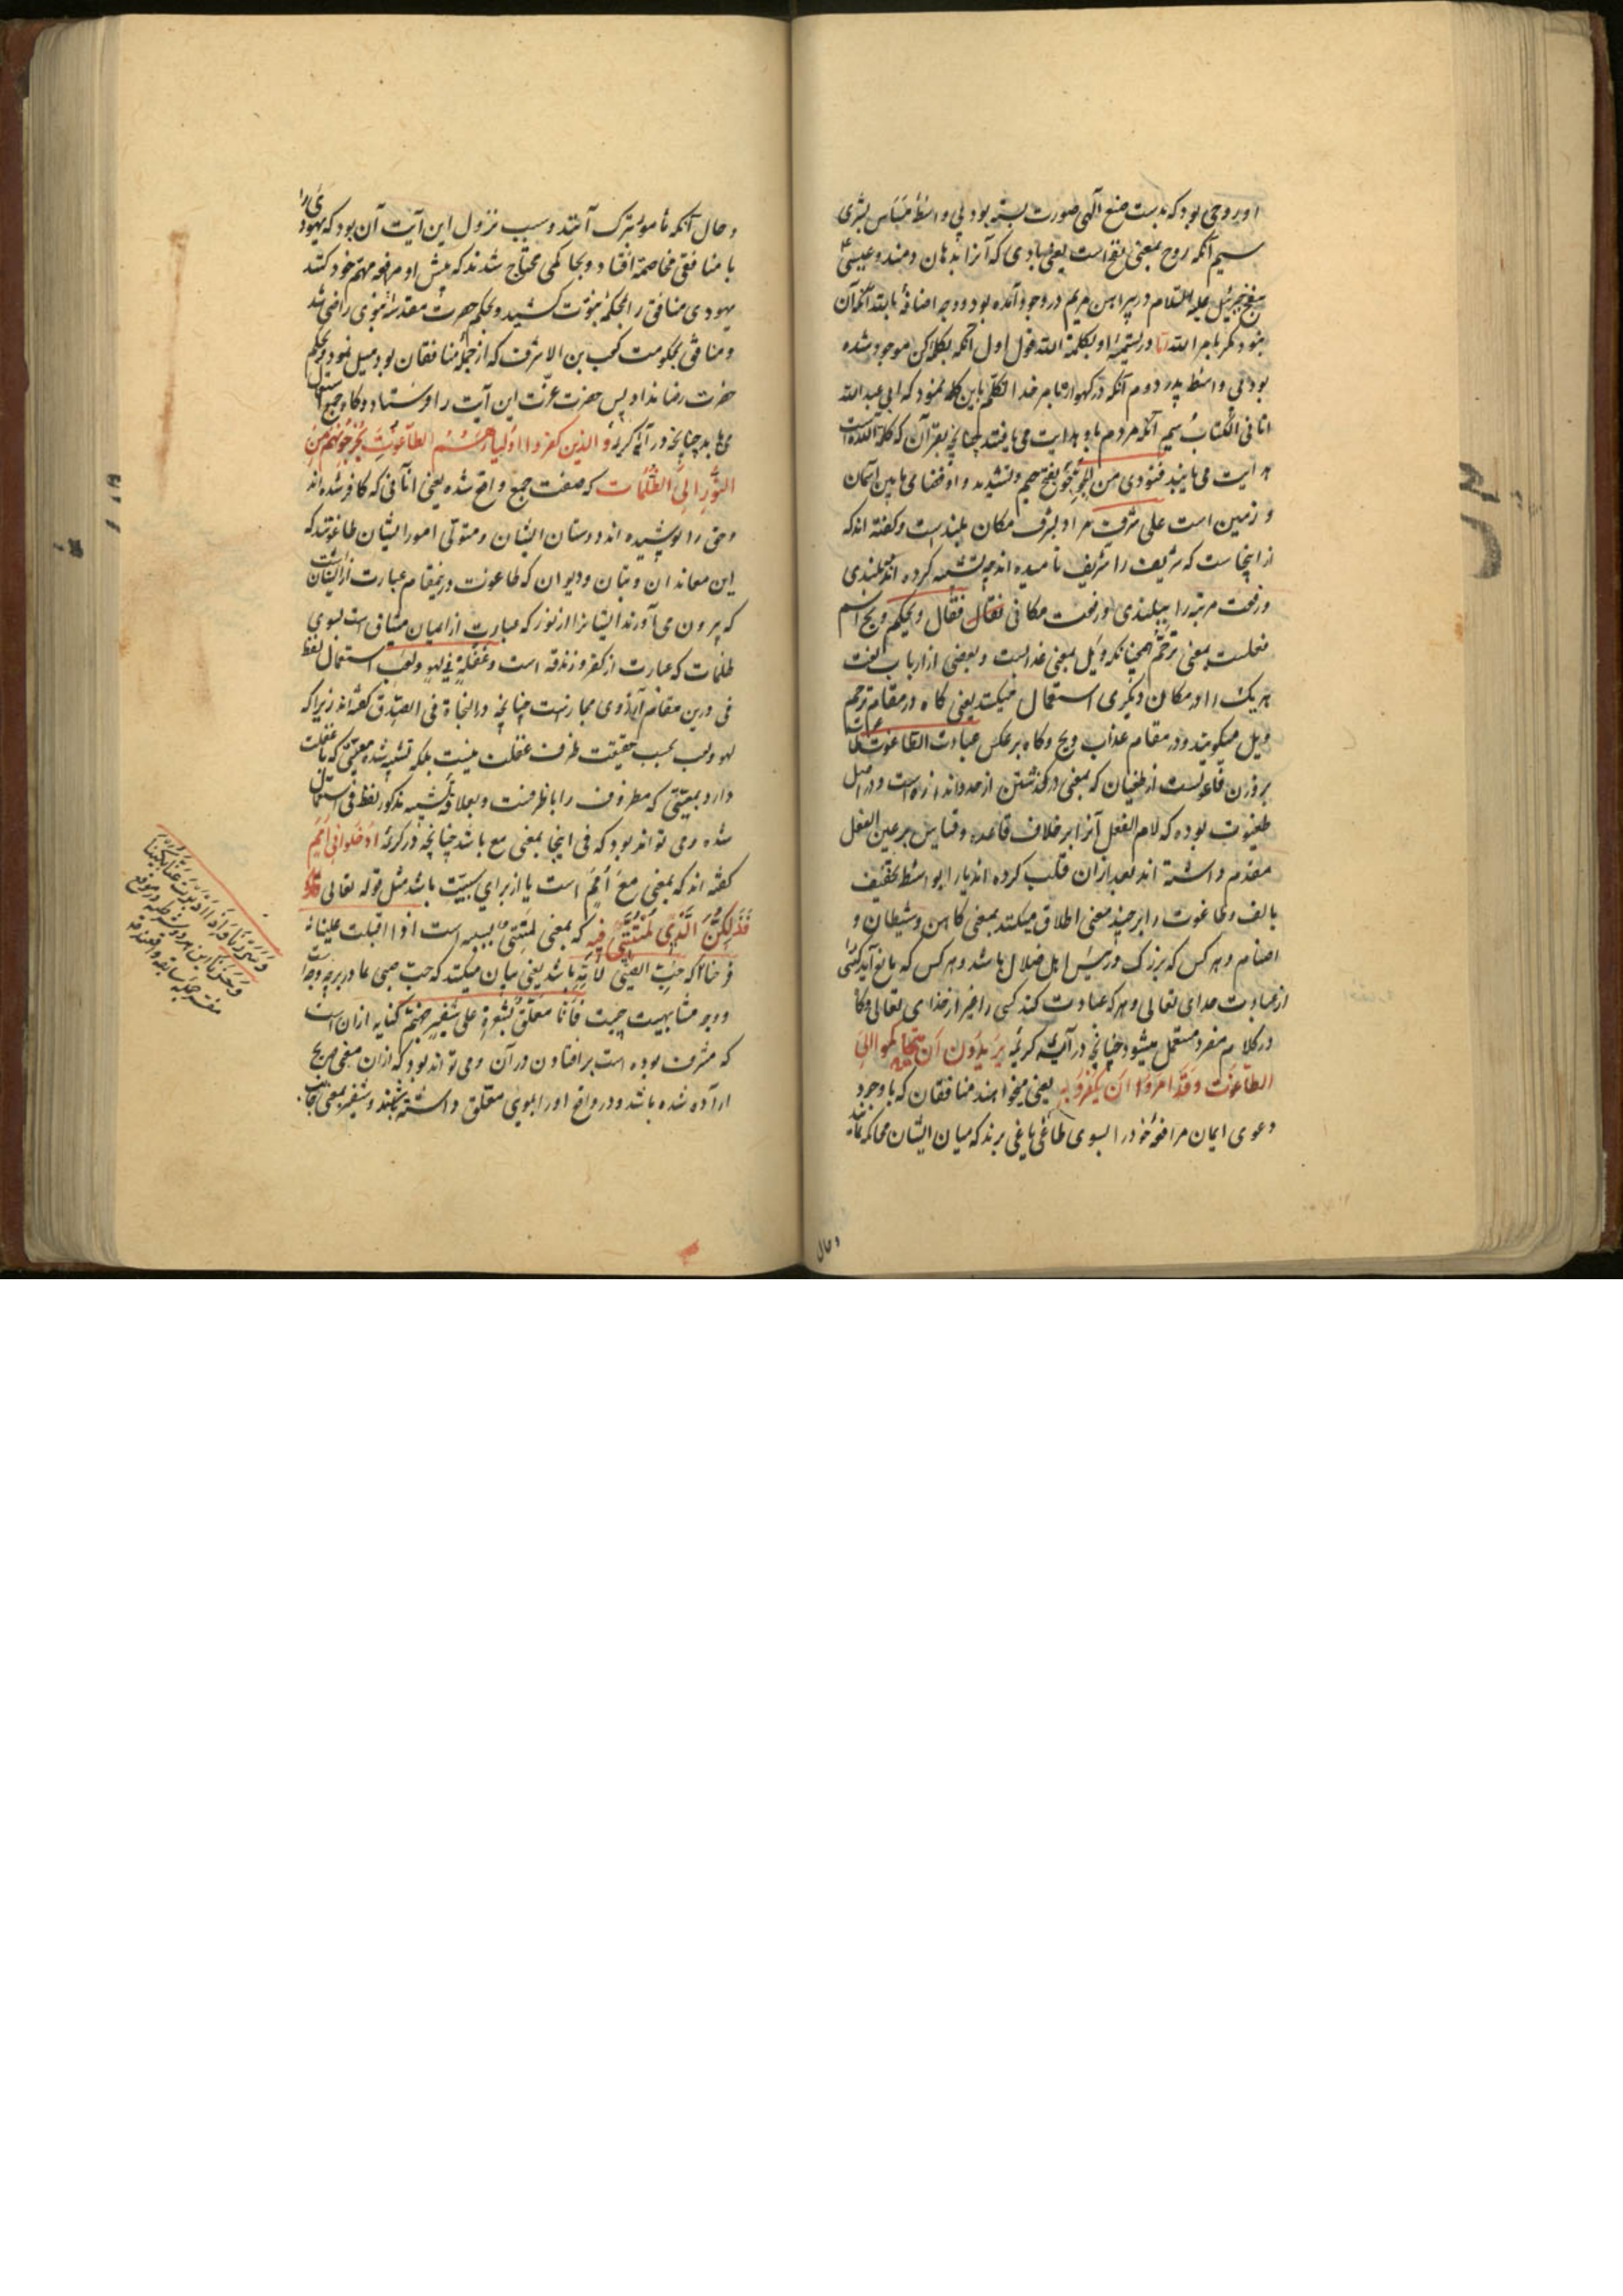 او روحی بود که بدست صنع الٓهی صورت بسته بود بی واسطهٔ مساس بشری
سیم آنکه روح بمعنی نفخ است یعنی بادی که آنرا بدهان دمند و عیسی
بنفخ جبرئیل علیه السّلام در پیراهن مریم در وجود آمده بود و وجه اضافهٔ
نبود مگر بامر الله امّا در تسمیهٔ او بکلمة الله اول آنکه بکلمهٔ کن موجود شده
بود بی واسطهٔ پدر دوم آنکه در گهواره بامر خدا تکلّم باین کلمه نمود که انی عبد الله
اتانی الکتاب سیم آنکه مردم باو هدایت می یافتند چنانچه بقرآن که کلام الله است
هدایت می یابند فنودی من الجوّ جوّ بفتح جیم و تشدید واو فضا می مابین آسمان
و زمین است علی شرف مراد بشرف مکان بلندیست و گفته اند که
از اینجاست که شریف را شریف نامیده اند چه تشبیه کرده اند بلندی
و رفعت مرتبه را ببلندی و رفعت مکانی فقال فقال ویحکم ویح اسم
فعلست بمعنی ترحّم همچنانکه ویل بمعنی عذابست و بعضی از ارباب لغت
هر یک را در مکان دیگری استعمال میکنند یعنی گاه در مقام ترحم
ویل میگویند و در مقام عذاب ویح و گاه بر عکس عبادت الطاغوت طاغوت
بر وزن فاعولست از طغیان که بمعنی درگذشتن از حد و اندازه است و در اصل
طغیوت بوده که لام الفعل آنرا بر خلاف قاعده و قیاس بر عین الفعل
مقدم داشته اند بعد از آن قلب کرده اند یا را بواسطهٔ تخفیف
بالف و طاغوت را بر چند معنی اطلاق میکنند بمعنی کاهن و شیطان و
اصنام و هر کس که بزرگ و رئیس اهل ضلال باشد و هر کس که مانع آید کسی
از عبادت خدای تعالی و هر که عبادت کند کسی را غیر از خدای تعالی و گاه
در کلام مفرد مستعمل میشود چنانچه در آیهٔ کریمهٔ یریدون ان یتحاکموا الی
الطاغوت و قد امروا ان یکفروا به یعنی میخواهند منافقان که با وجود
دعوی ایمان مرافعهٔ خود را بسوی طاغی باغی برند که میان ایشان محاکمه نماید
و حال
و حال آنکه مأمور بترک آنند و سبب نزول این آیت آن بود که یهودی را
با منافقی مخاصمه افتاد و بحاکمی محتاج شدند که پیش او مرافعهٔ مهم خود کنند
یهودی منافق را بمحکمهٔ نبوّت کشید و بحکم حضرت مقدسهٔ نبوی راضی شد
و منافق بحکومت کعب بن الاشرف که از جملهٔ منافقان بود میل نمود و بحکم
حضرت رضا نداد پس حضرت عزّت این آیت را فرستاد و گاه جمع استعمال
می یابد چنانچه در آیهٔ کریمهٔ و الذین کفروا اولیاؤهم الطاغوت یخرجونهم من
النور الی الظلمات که صفت جمع واقع شده یعنی آنانی که کافر شده اند
و حق را پوشیده اند دوستان ایشان و متولّی امور ایشان طاغوتند که
این معاندان و بتان و دیوان که طاغوت درین مقام عبارت از ایشانست
که بیرون می آورند ایشانرا از نور که عبارت از ایمان میثاقی است بسوی
ظلمات که عبارت از کفر و زندقه است و غفلة فی لهو و لعب استعمال لفظ
فی درین مقام از روی مجاز است چنانچه در النجاة فی الصدق گفته اند زیرا که
لهو و لعب بحسب حقیقت ظرف غفلت نیست بلکه تشبیه شده معیتی که با غفلت
دارد بمعیتی که مظروف را با ظرفست و بعلاقهٔ تشبیه مذکور لفظ فی استعمال
شده و می تواند بود که فی اینجا بمعنی مع باشد چنانچه در کریمهٔ ادخلوا فی امم
گفته اند که بمعنی مع امم است یا از برای سببیّت باشد مثل قوله تعالی
فذلکن الذی لمتننی فیه که بمعنی لمتننی بسببه است اذا اقبلت علینا
فرحنا که حبّ الصبی لامّه باشد یعنی بیان میکند که حبّ صبی مادر بر چه وجه است
و وجه مشابهت چیست فانا معلق بشعرة علی شفیر جهنم کنایه از آن است
که مشرف بوده است بر افتادن در آن و می تواند بود که از آن معنی صریح
اراده شده باشد و در واقع او را بموی معلق داشته باشند و شفیر بمعنی جانب